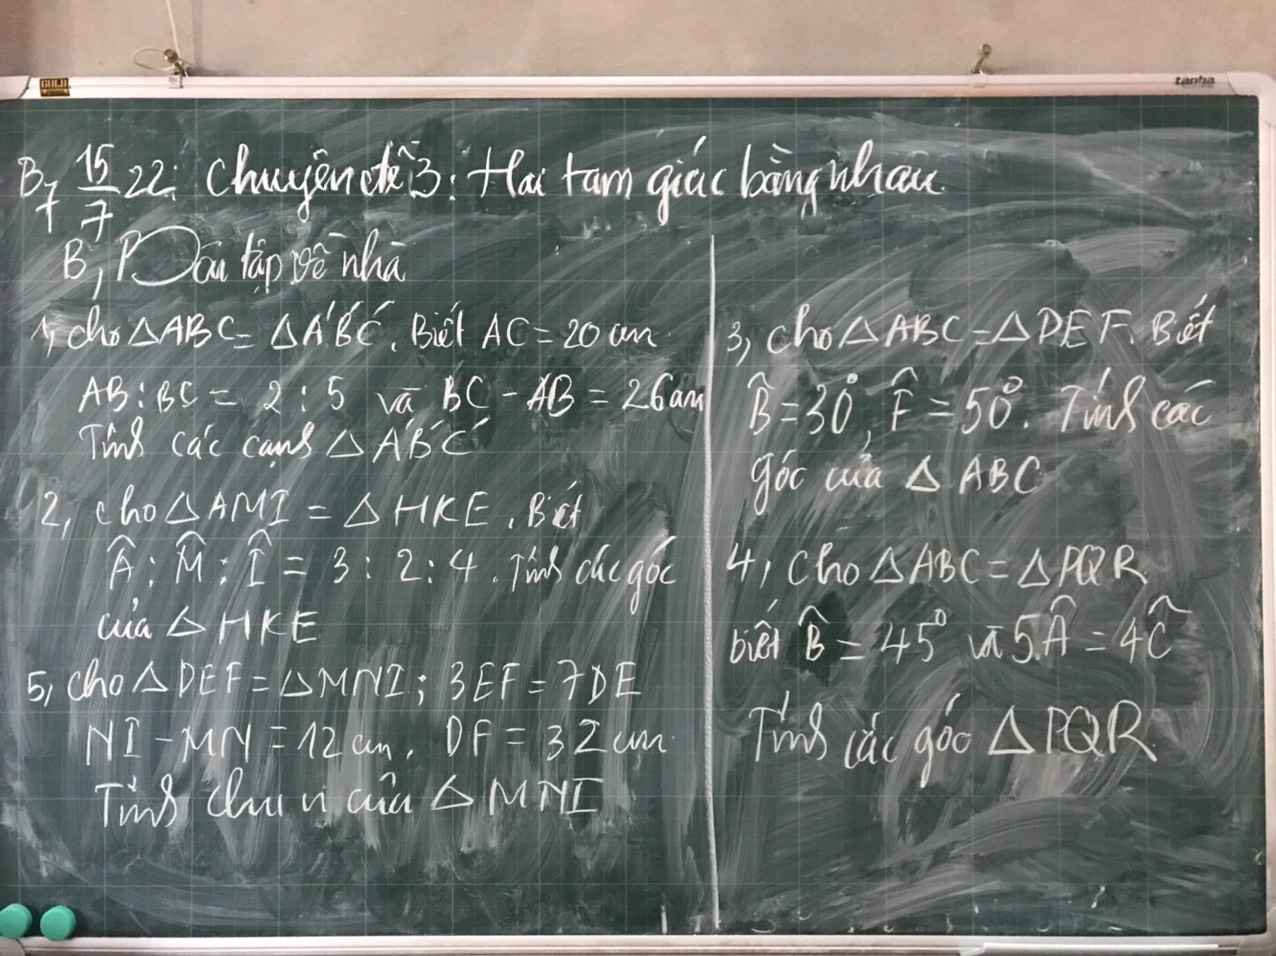 GOLD
tanha
B7 15/7 22: Chuyên đề 3: Hai tam giác bằng nhau
B, Bài tập về nhà
1, Cho △ABC = △A'B'C'. Biết AC = 20cm
AB : BC = 2 : 5 và BC - AB = 26cm
Tính các cạnh △A'B'C'
2, Cho △AMI = △HKE. Biết
Â : M̂ : Î = 3 : 2 : 4. Tính các góc
của △HKE
5, Cho △DEF = △MNI; 3EF = 7DE
NI - MN = 12cm. DF = 32cm
Tính chu vi của △MNI
3, Cho △ABC = △DEF. Biết
B̂ = 30°, F̂ = 50°. Tính các
góc của △ABC
4, Cho △ABC = △PQR
biết B̂ = 45° và 5.Â = 4Ĉ
Tính các góc △PQR